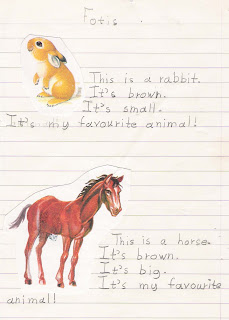 Fotis.
This is a rabbit.
It's brown.
It's small.
It's my favourite animal!
This is a horse.
It's brown.
It's big.
It's my favourite
animal!